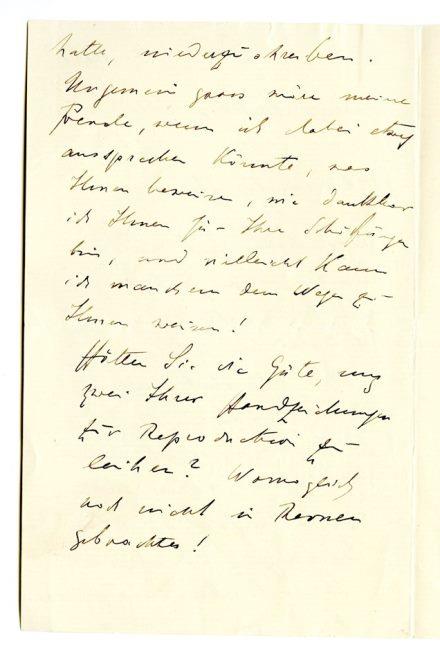 hatte, niederzuschreiben.
Ungemein gross wäre meine
Freude, wenn ich dabei etwas
aussprechen könnte, was
Ihnen beweise, wie dankbar
ich Ihnen für Ihre Schöpfungen
bin, und vielleicht kann
ich manchem den Weg zu
Ihnen weisen!
Hätten Sie die Güte, uns
zwei Ihrer Handzeichnungen
für Reproduction zu
leihen? Womöglich
noch nicht in Revuen
gebrachtes!